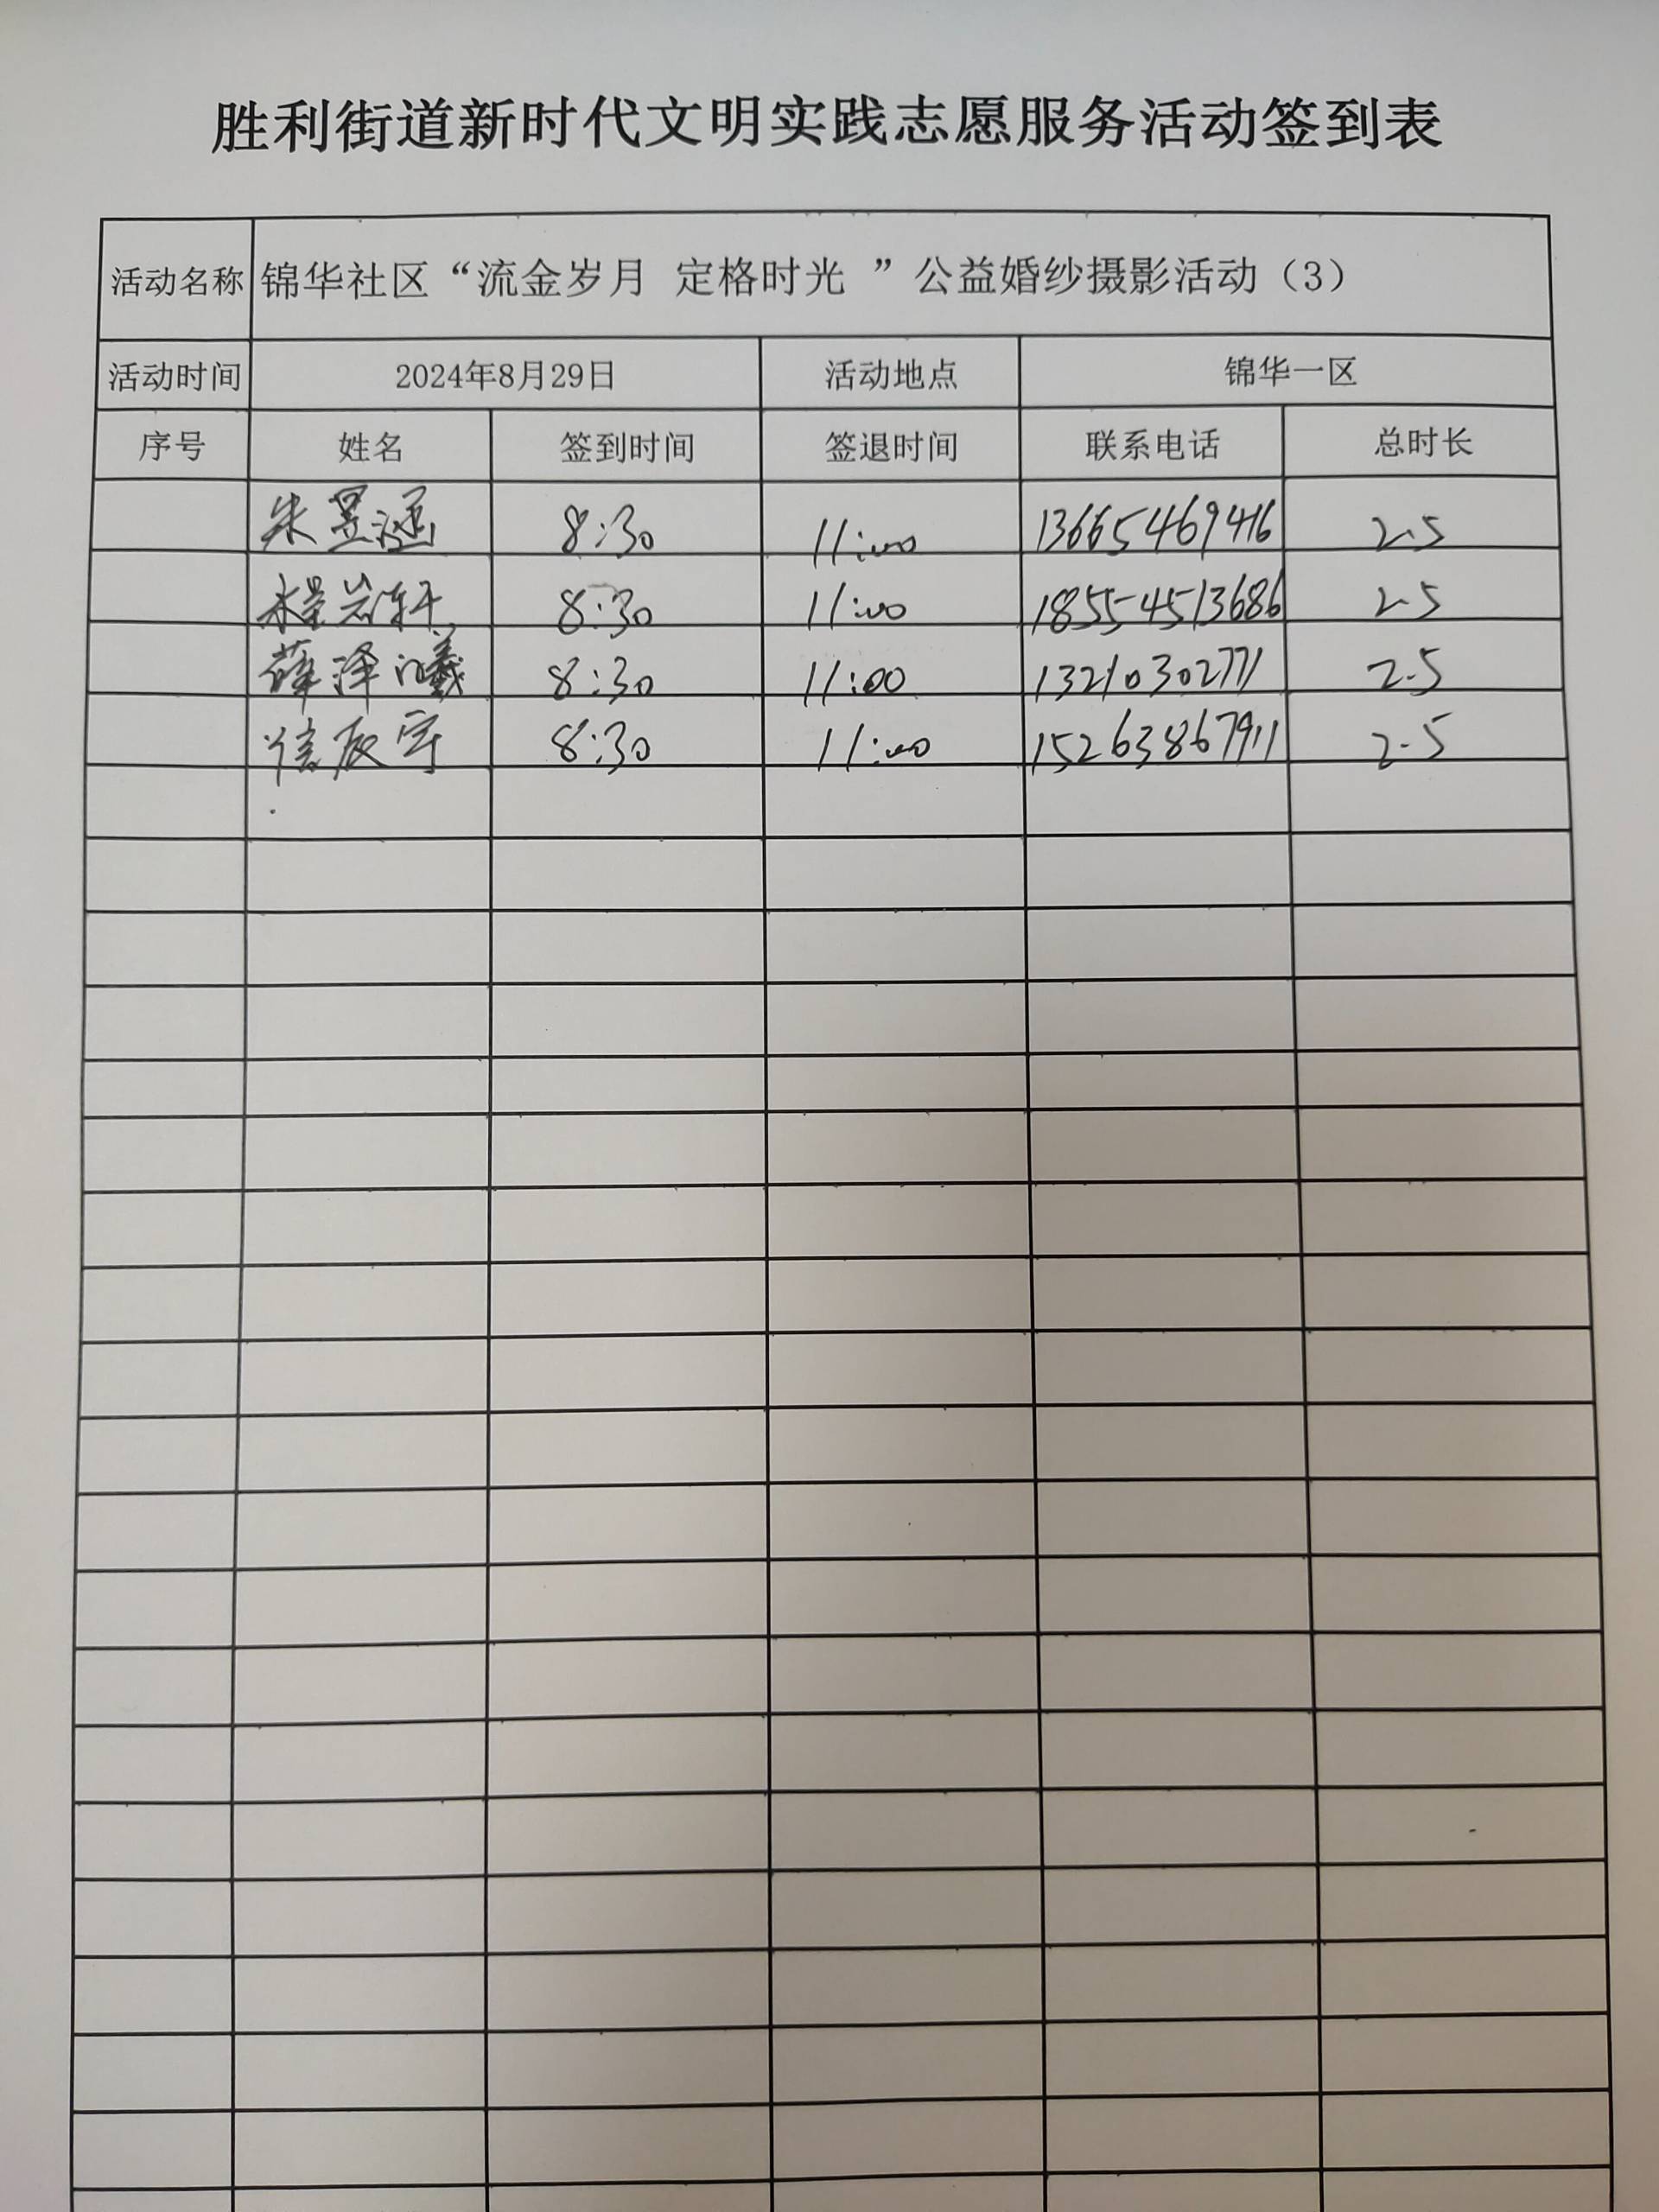 胜利街道新时代文明实践志愿服务活动签到表
活动名称 锦华社区“流金岁月 定格时光 ”公益婚纱摄影活动（3）
活动时间 2024年8月29日 活动地点 锦华一区
序号 姓名 签到时间 签退时间 联系电话 总时长
朱昱涵 8:30 11:00 13665469416 2.5
岩轩 8:30 11:00 18554513686 2.5
薛泽曦 8:30 11:00 13210302771 2.5
信辰宇 8:30 11:00 15263867911 2.5